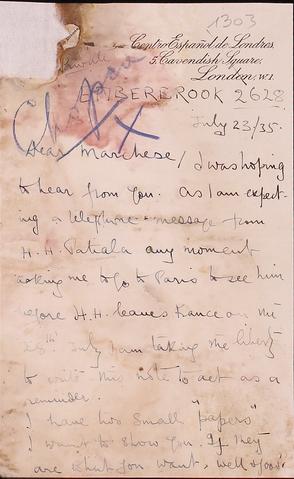 1303
Centro Español de Londres,
5, Cavendish Square,
London, W.1.
Private
EMBERBROOK 2628
July 23/35.
Dear Marchese/ I was hoping
to hear from you. As I am expect-
ing a telephone message from
H.H. Patiala any moment
asking me to go to Paris to see him
before H.H. leaves France on the
28th July I am taking the liberty
to write this note to act as a
reminder.
I have two small "papers"
I want to show you. If they
are what you want, well & good